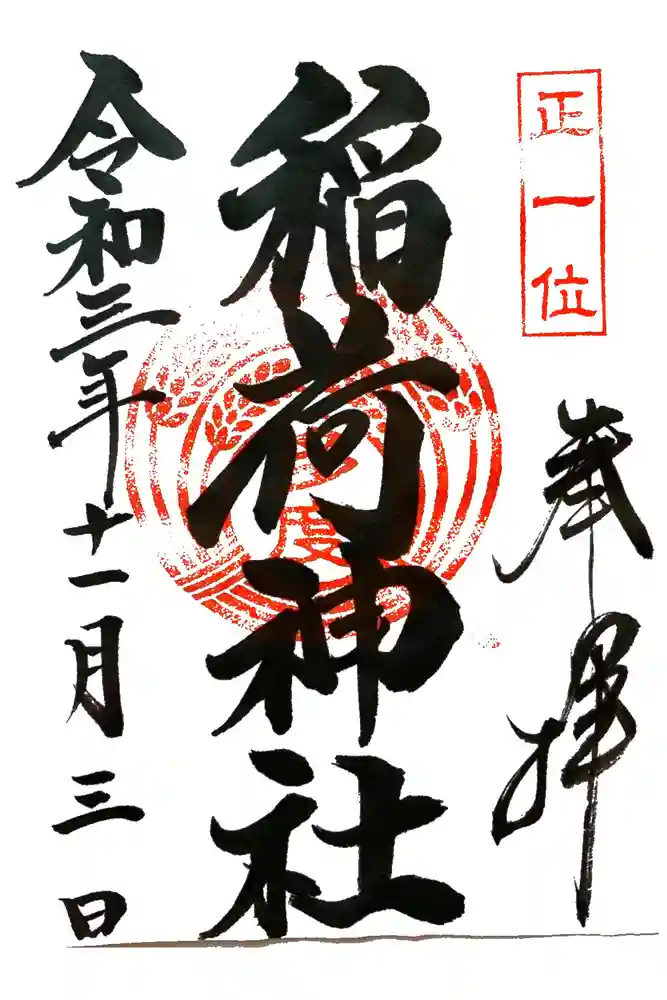 正一位
奉拝
稲荷神社
度
令和三年十一月三日